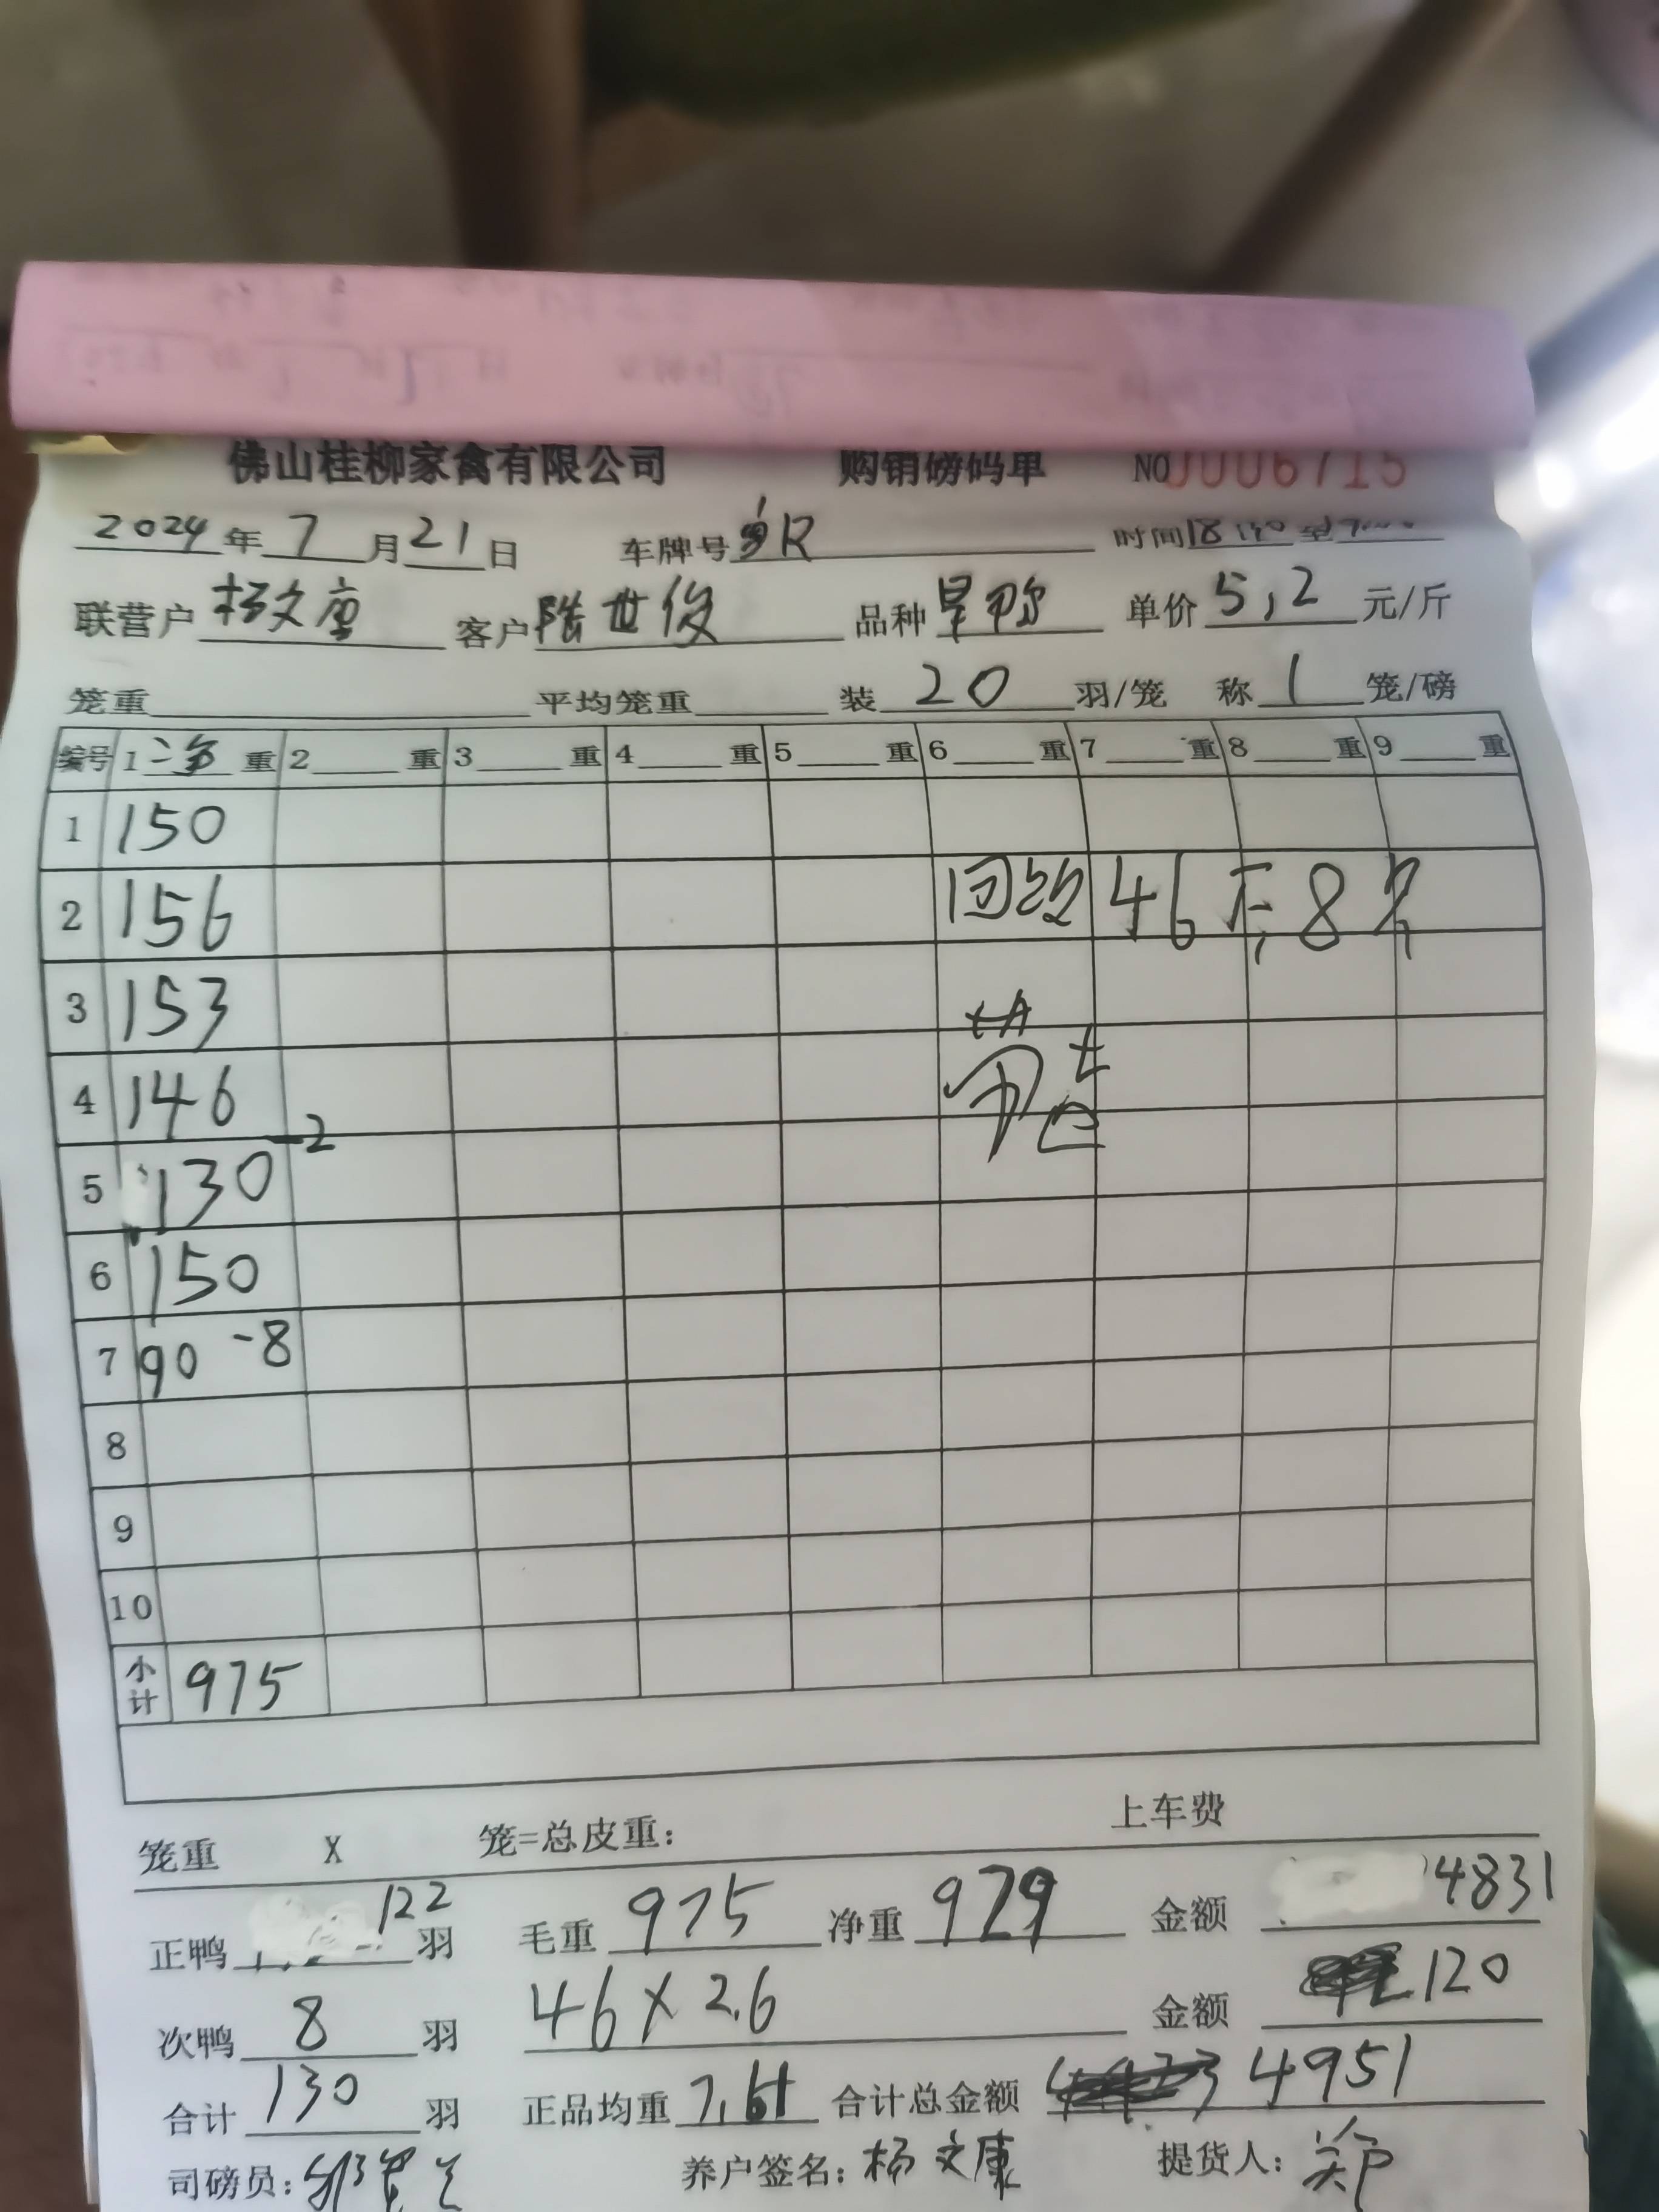 佛山桂柳家禽有限公司 购销磅码单 NO 0006715
2024年7月21日 车牌号 时间18
联营户 杨文康 客户 陆世俊 品种 旱鸭 单价 5,2 元/斤
笼重 平均笼重 装 20 羽/笼 称 1 笼/磅
编号 1 净 重 2 重 3 重 4 重 5 重 6 重 7 重 8 重 9 重
1 150
2 156 回 46斤 8只
3 153
4 146
5 130 -2
6 150
7 90 -8
8
9
10
小计 975
笼重 X 笼=总皮重: 上车费
正鸭 122 羽 毛重 975 净重 929 金额 4831
次鸭 8 羽 46×2.6 金额 120
合计 130 羽 正品均重 7.61 合计总金额 4951
司磅员: 养户签名: 杨文康 提货人: 郑